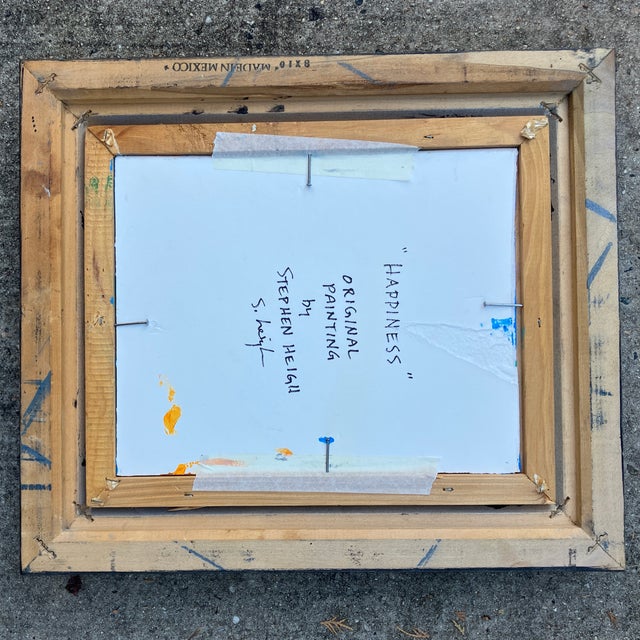 8X10" MADE IN MEXICO
"HAPPINESS"
ORIGINAL
PAINTING
by
STEPHEN HEIGH
S. Heigh